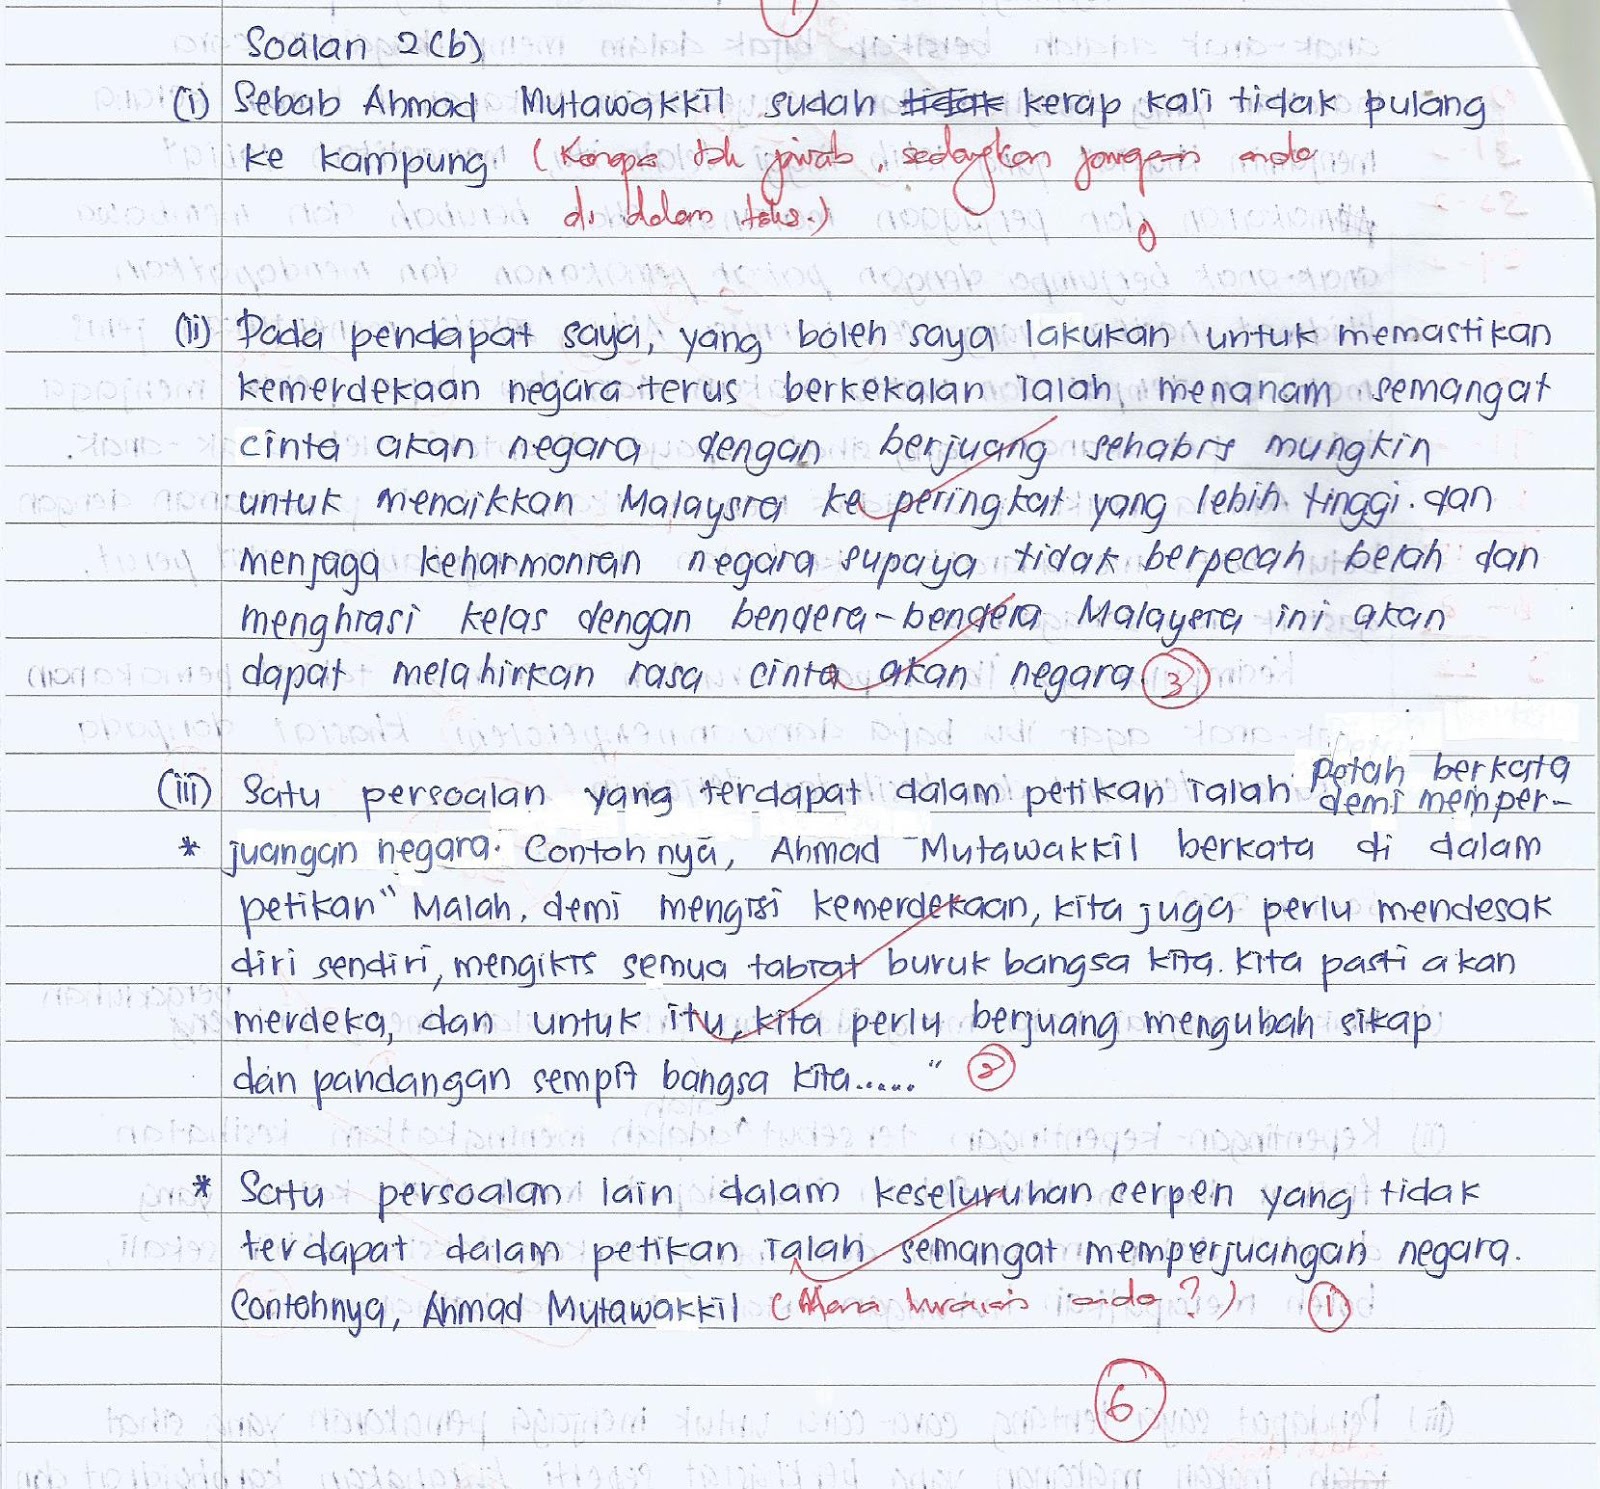 1
Soalan 2(b)
(i) Sebab Ahmad Mutawakkil sudah tidak kerap kali tidak pulang
ke kampung. (Kenapa tak jawab, sedangkan jawapan anda
di dalam teks.) 0
(ii) Pada pendapat saya, yang boleh saya lakukan untuk memastikan
kemerdekaan negara terus berkekalan ialah menanam semangat
cinta akan negara dengan berjuang sehabis mungkin
untuk menaikkan Malaysia ke peringkat yang lebih tinggi. dan
menjaga keharmonian negara supaya tidak berpecah belah dan
menghiasi kelas dengan bendera-bendera Malaysia ini akan
dapat melahirkan rasa cinta akan negara. 3
(iii) Satu persoalan yang terdapat dalam petikan ialah petah berkata
demi memper-
* juangan negara. Contohnya, Ahmad Mutawakkil berkata di dalam
petikan "Malah, demi mengisi kemerdekaan, kita juga perlu mendesak
diri sendiri, mengikis semua tabiat buruk bangsa kita. Kita pasti akan
merdeka, dan untuk itu, kita perlu berjuang mengubah sikap
dan pandangan sempit bangsa kita....." 2
* Satu persoalan lain dalam keseluruhan cerpen yang tidak
terdapat dalam petikan ialah semangat memperjuangan negara.
Contohnya, Ahmad Mutawakkil (Mana huraian anda?) 1
6